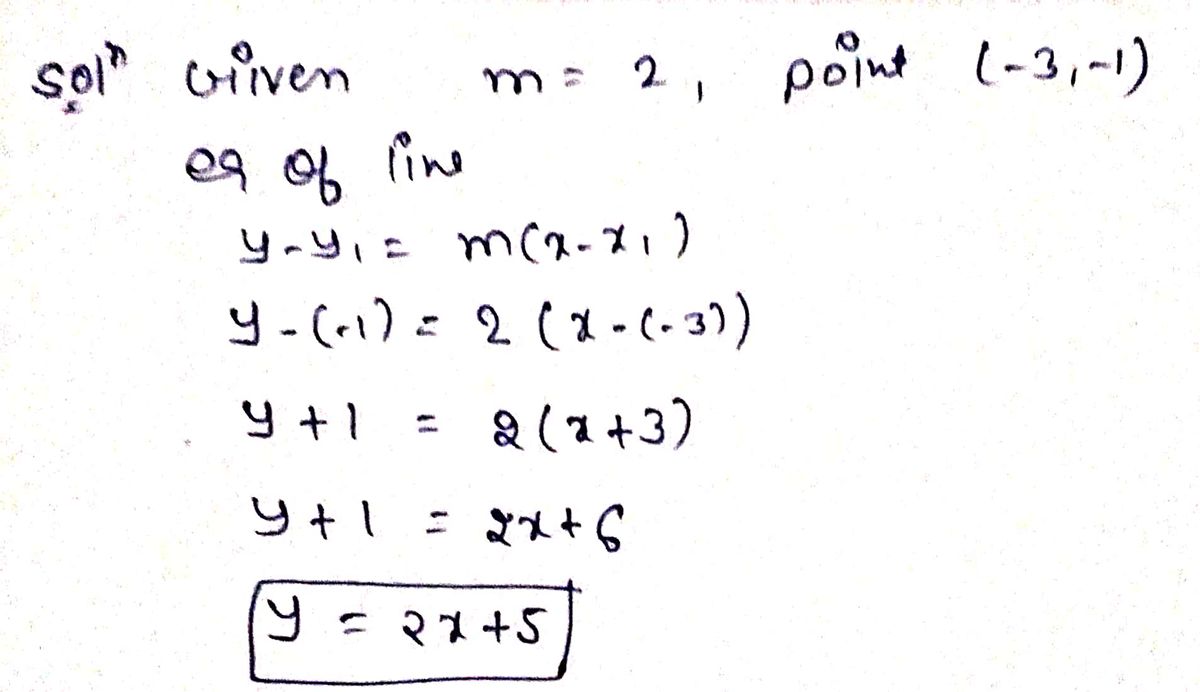 Solⁿ Given m = 2, point (-3,-1)
eq of line
y-y₁ = m(x-x₁)
y-(-1) = 2(x-(-3))
y+1 = 2(x+3)
y+1 = 2x+6
y = 2x+5